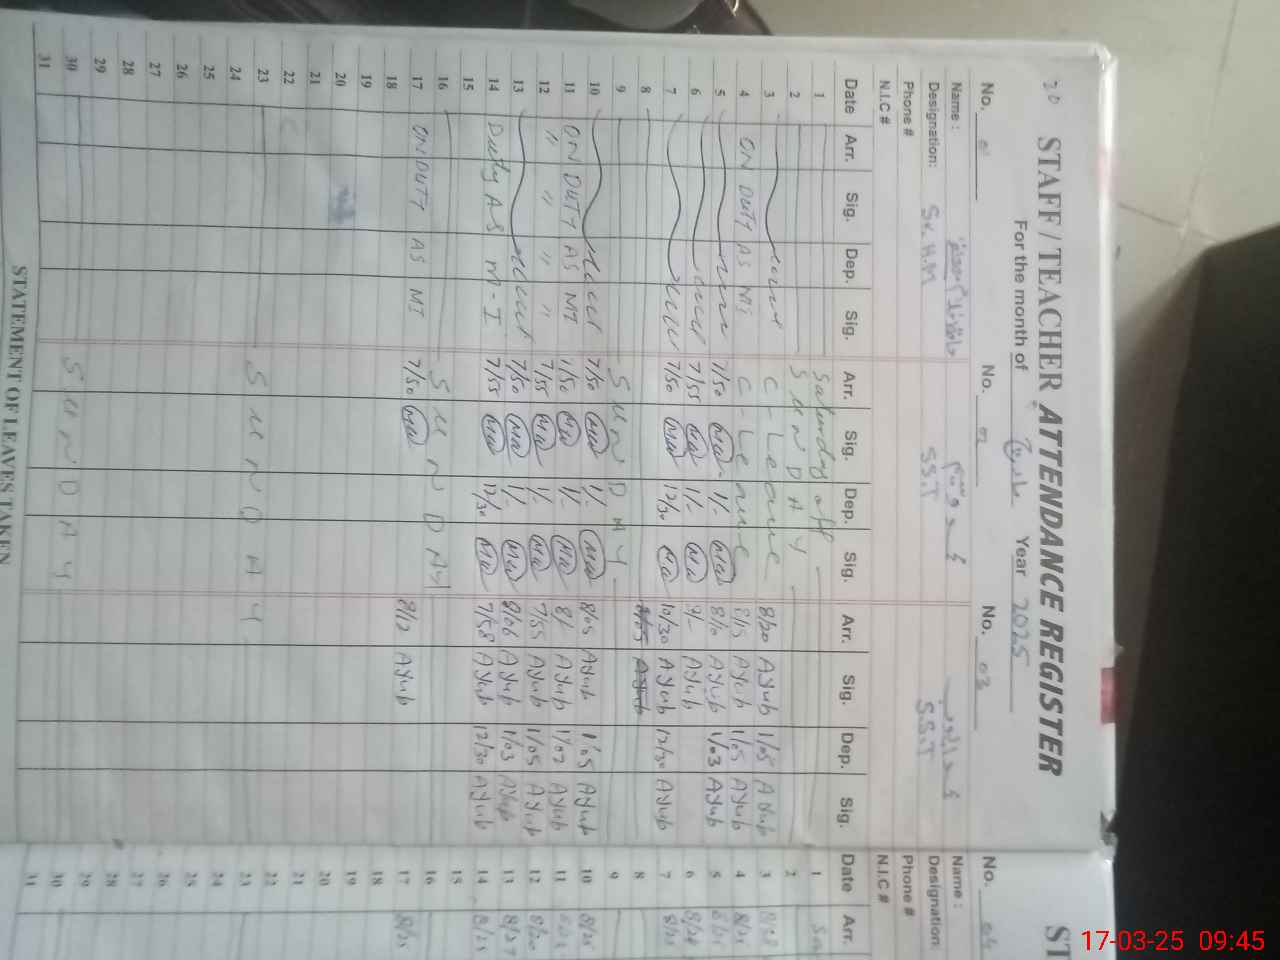 20 STAFF / TEACHER ATTENDANCE REGISTER
For the month of مارچ Year 2025
No. 01 No. 02 No. 03 No. 04
Name :
Designation: Sr. H.M S.S.T S.S.T
Phone #
N.I.C #
Date Arr. Sig. Dep. Sig. Arr. Sig. Dep. Sig. Arr. Sig. Dep. Sig.
1 Saturday off
2 S U N D A Y
3 C - Leave 8/20 Ayub 1/05 Ayub
4 ON DUTY AS MI C - Leave 8/15 Ayub 1/05 Ayub
5 7/50 MW 1/- MW 8/10 Ayub 1/03 Ayub
6 7/55 MW 1/- MW 8/- Ayub
7 7/50 MW 12/30 MW 10/30 Ayub 12/30 Ayub
8 8/05 Ayub
9 S U N D A Y
10 7/50 MW 1/- MW 8/05 Ayub 1/05 Ayub
11 ON DUTY AS MI 7/50 MW 1/- MW 8/- Ayub 1/02 Ayub
12 " " " " 7/55 MW 1/- MW 7/55 Ayub 1/05 Ayub
13 7/50 MW 1/- MW 8/06 Ayub 1/03 Ayub
14 Duty AS M-I 7/55 MW 12/30 MW 7/58 Ayub 12/30 Ayub
15
16 S U N D A Y
17 ON DUTY AS MI 7/50 MW 8/12 Ayub
18
19
20
21
22
23 S U N D A Y
24
25
26
27
28
29
30 S U N D A Y
31
STATEMENT OF LEAVES TAKEN
ST
Name :
Designation:
Phone #
N.I.C #
Date Arr.
1
2
3
4
5
6
7
8
9
10
11
12
13
14
15
16
17
18
19
20
21
22
23
24
25
26
27
28
29
30
31
17-03-25 09:45